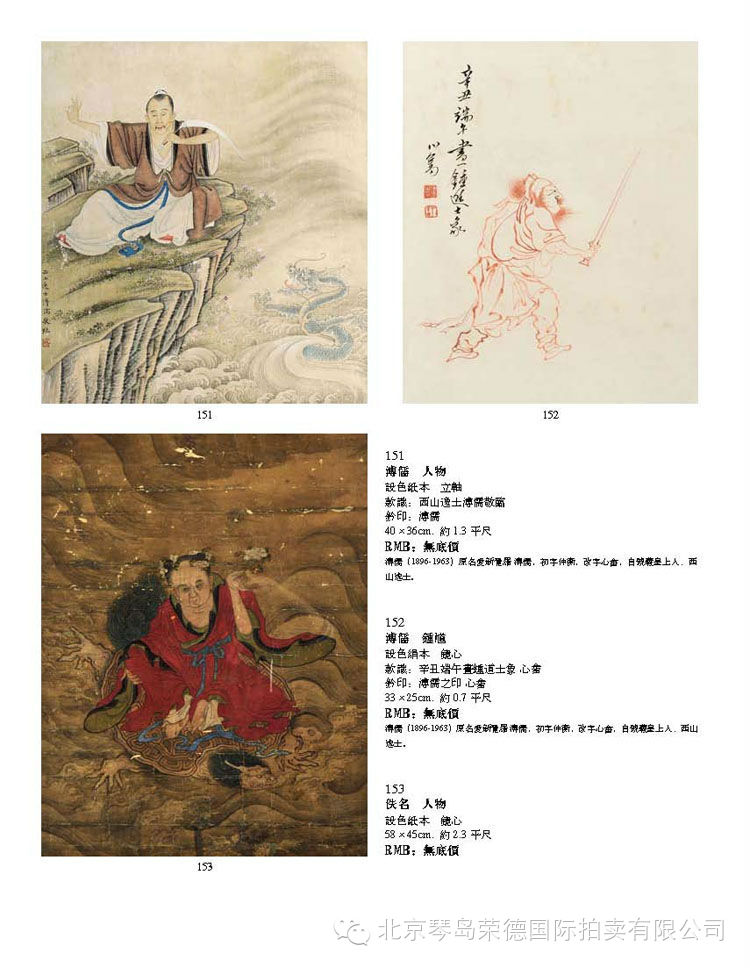 辛丑端午畫鍾進士象
心畬
西山逸士溥儒敬臨
151
152
153
151
溥儒 人物
設色紙本 立軸
款識：西山逸士溥儒敬臨
鈐印：溥儒
40×36cm. 約1.3 平尺
RMB：無底價
溥儒（1896-1963）原名愛新覺羅·溥儒，初字仲衡，改字心畬，自號羲皇上人、西
山逸士。
152
溥儒 鍾馗
設色絹本 鏡心
款識：辛丑端午畫鍾道士象 心畬
鈐印：溥儒之印 心畬
33×25cm. 約0.7 平尺
RMB：無底價
溥儒（1896-1963）原名愛新覺羅·溥儒，初字仲衡，改字心畬，自號羲皇上人、西山
逸士。
153
佚名 人物
設色紙本 鏡心
58×45cm. 約2.3 平尺
RMB：無底價
北京琴岛荣德国际拍卖有限公司